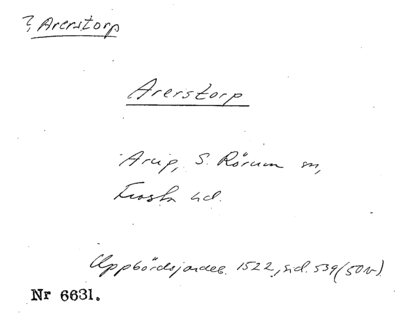 ?, Arerstorp
Arerstorp
Arup, S. Rörum sn,
Frosta hd.
Uppbördsjordeb. 1522, sid. 539 (50 v).
Nr 6631.